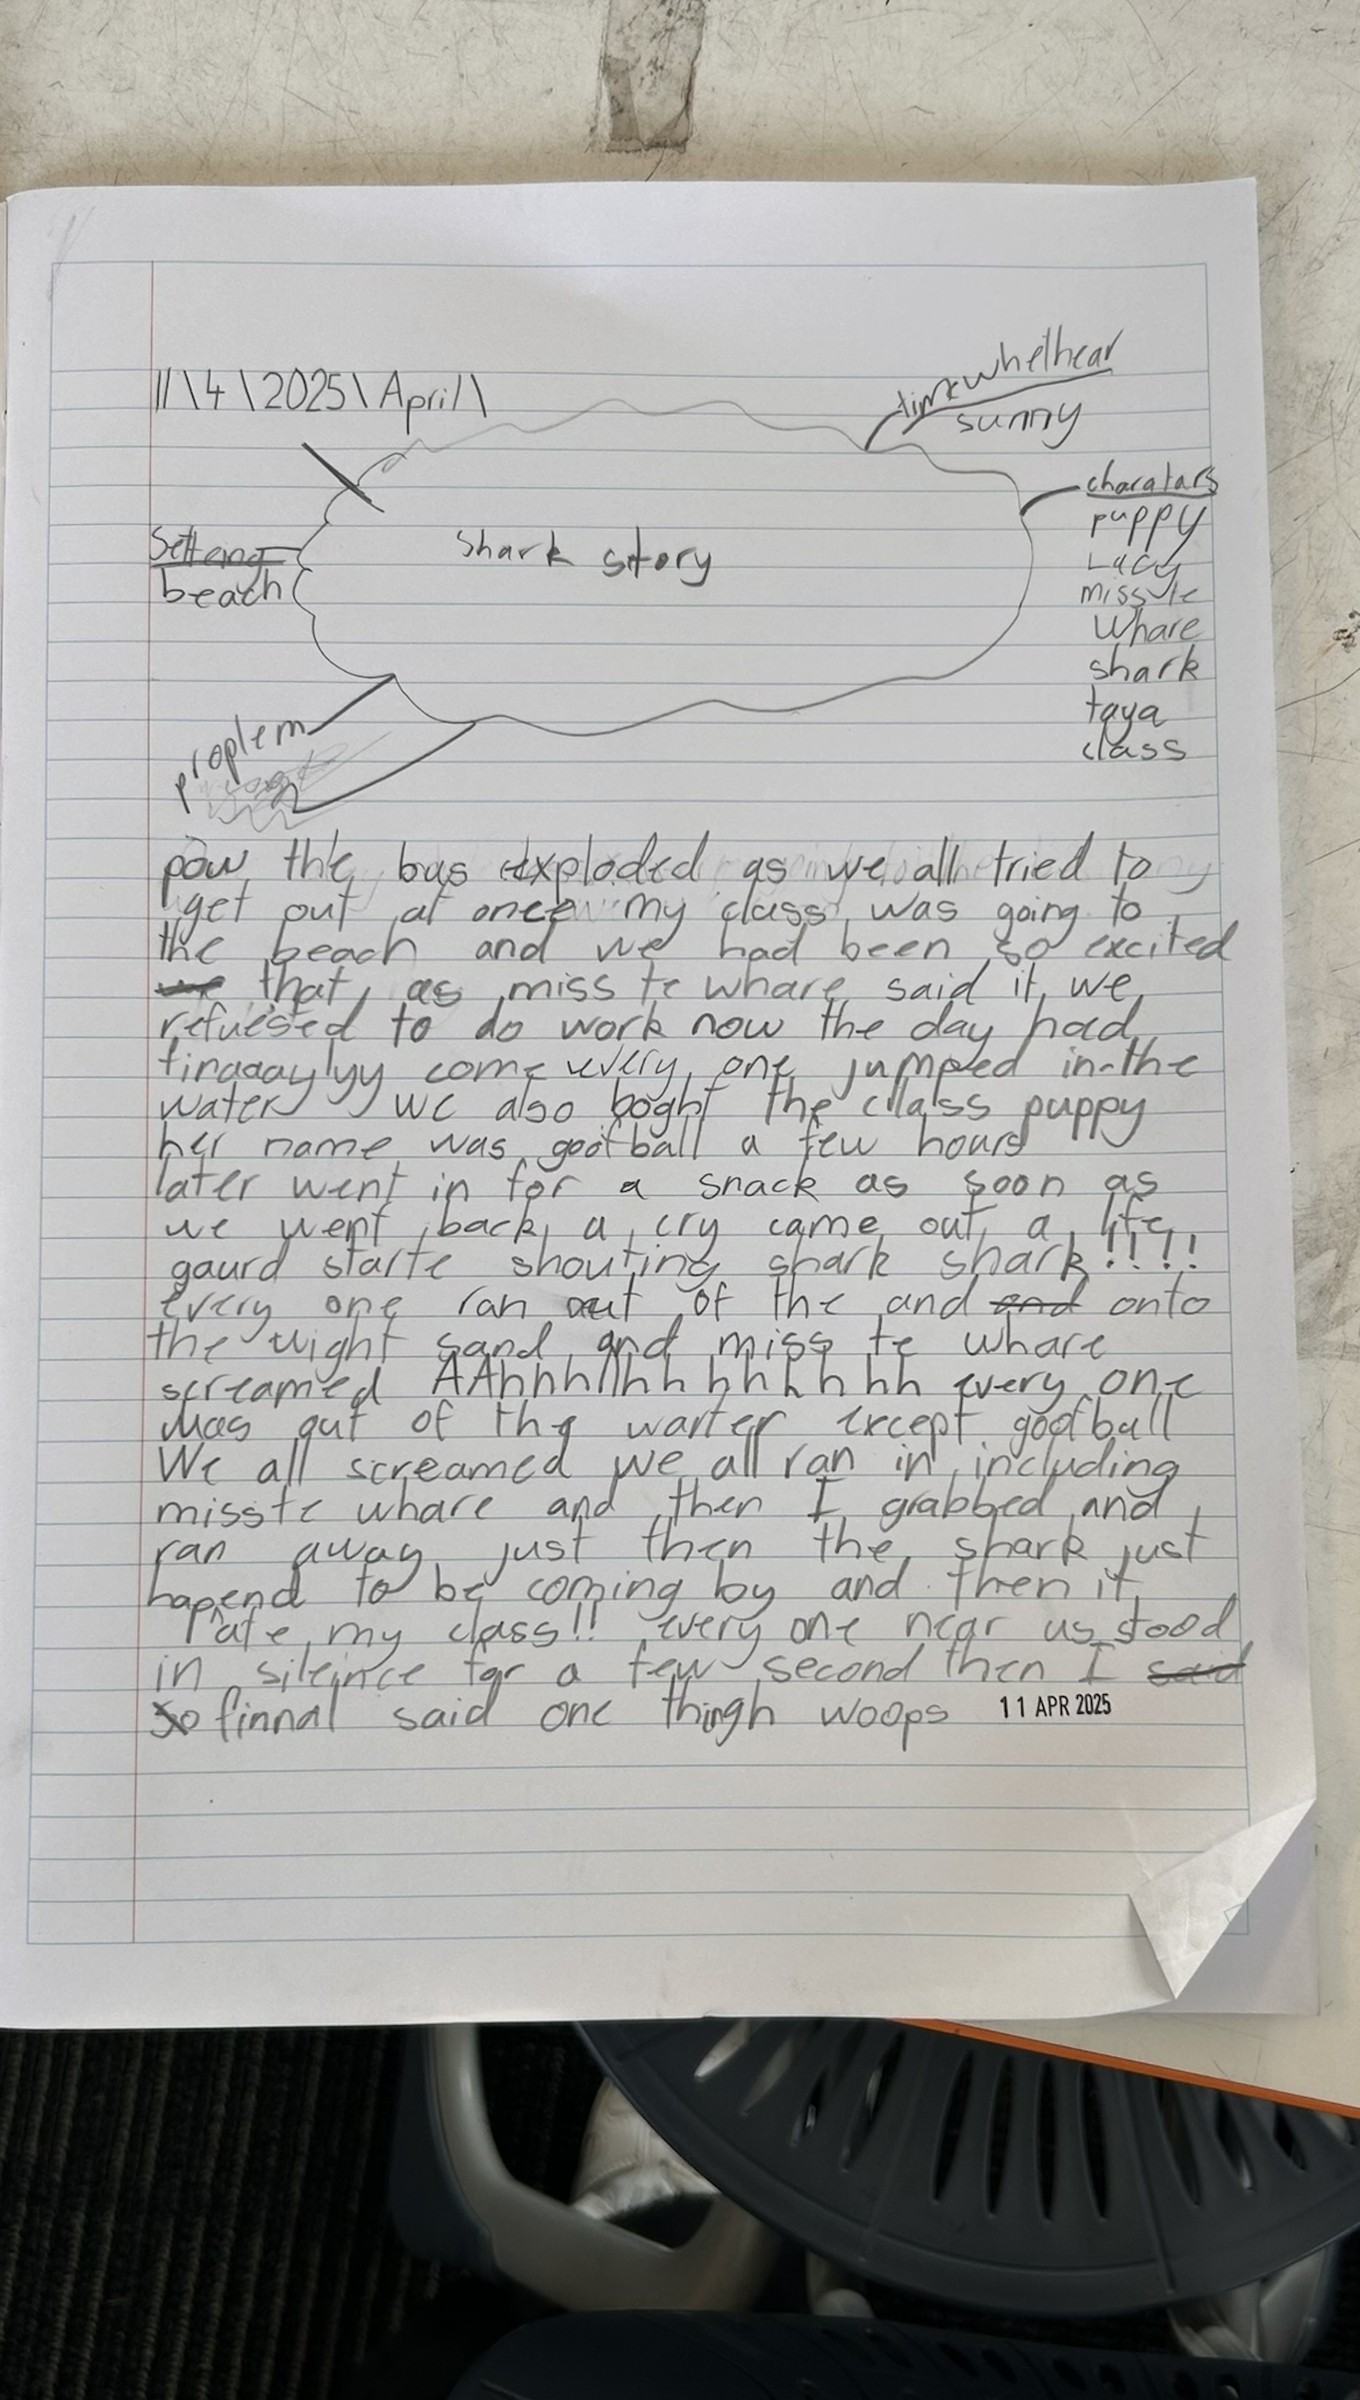 11\4\2025\April\
whethear
sunny
charatars
puppy
Lacy
miss te
whare
shark
taya
class
Setteing
beach
Shark story
proplem
pow the bus exploded as we all tried to
get out at once my class was going to
the beach and we had been so excited
that as miss te whare said it we
refuesed to do work now the day had
finaaaylyy come every one jumped in the
water we also boght the class puppy
her name was goofball a few hours
later went in for a snack as soon as
we went back a cry came out a life
gaurd starte shouting shark shark!!!!
every one ran out of the and and onto
the wight sand and miss te whare
screamed AAhhhhhhhhhhhh every one
was out of the warter except goofball
We all screamed we all ran in including
miss te whare and then I grabbed and
ran away just then the shark just
hapend to be coming by and then it
ate my class!! every one near us stood
in sileince for a few second then I said
so finnal said one thingh woops 11 APR 2025